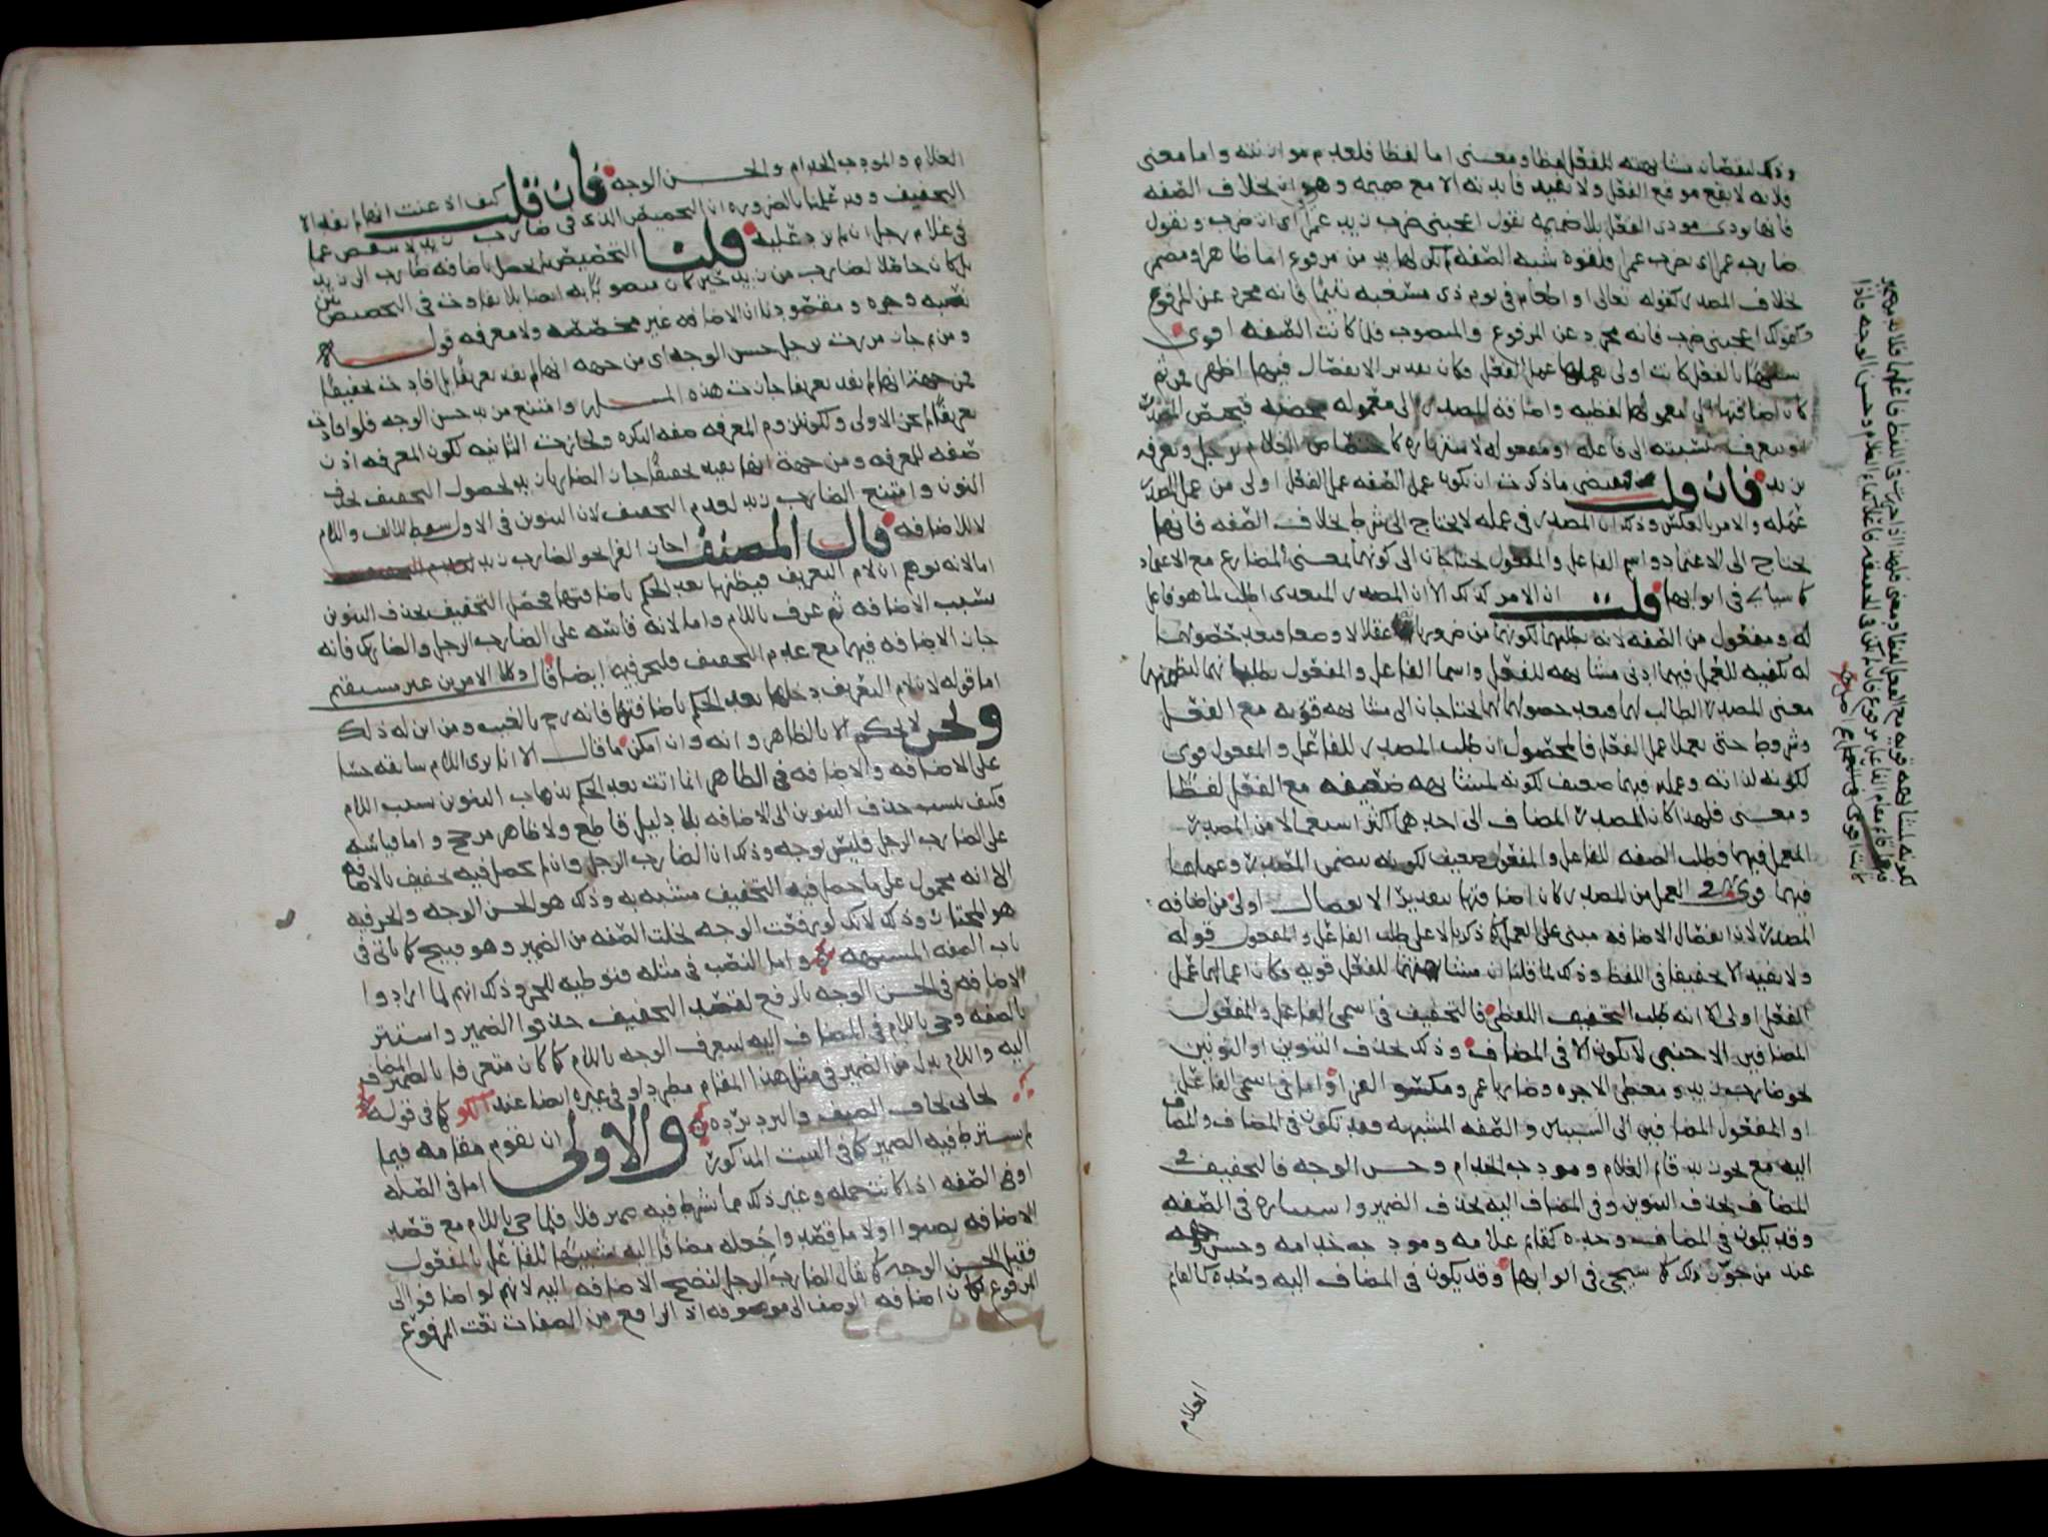 وذلك لنقصان مشابهته للفعل لفظا ومعنى اما لفظا فلعدم موازنته واما معنى
فلانه لا يقع موقع الفعل ولا يفيد فايدته الا مع ضميمه وهو ان بخلاف الصفه
فانها تودى مودى الفعل بلا ضميمه تقول اعجبنى ضرب زيد عمرا اى ان ضرب وتقول
ضارب عمرا اى يضرب عمرا ولقوه شبه الصفه لم يكن لها بد من مرفوع اما ظاهر او مضمر
بخلاف المصدر كقوله تعالى او اطعام فى يوم ذى مسغبه يتيما فانه مجرد عن المرفوع
وكقولك اعجبنى ضرب فانه مجرد عن المرفوع والمنصوب فلما كانت الصفه اقوى
شبها بالفعل كانت اولى بعملها عمل الفعل وكان تقدير الانفصال فيها اظهر فمن ثم
كان اضافتها الى معمولها لفظيه واضافه المصدر الى معموله محضه فيخصص المصدر
او يتعرف بنسبته الى فاعله او مفعوله لاشتهاره كاختصاص الغلام برجل وتعرفه
بزيد فان قلت مقتضى ما ذكرت ان يكون عمل الصفه عمل الفعل اولى من عمل المصدر
عمله والامر بالعكس وذلك ان المصدر فى عمله لا يحتاج الى شرط بخلاف الصفه فانها
تحتاج الى الاعتماد واسم الفاعل والمفعول يحتاجان الى كونهما بمعنى المضارع مع الاعتماد
كما سياتى فى ابوابها قلت ان الامر كذلك الا ان المصدر المتعدى اطلب لما هو فاعل
له ومفعول من الصفه لانه يطلبهما لكونهما من ضرورياته عقلا لا وضعا فبعد حصولهما
له يكفيه للعمل فيهما ادنى مشابهه للفعل واسما الفاعل والمفعول يطلبانهما لتضمنهما
معنى المصدر الطالب لهما فبعد حصولهما لهما يحتاجان الى مشابهه قويه مع الفعل
وشروط حتى يعملا عمل الفعل فالمحصول ان طلب المصدر للفاعل والمفعول قوى
لكونه لذاته وعمله فيهما ضعيف لكونه لمشابهه ضعيفه مع الفعل لفظا
ومعنى فلهذا كان المصدر المضاف الى احدهما اكثر استعمالا من المصدر
المعمل فيهما وطلب الصفه للفاعل والمفعول ضعيف لكونه لتضمن المصدر وعملها
فيهما قوى العمل من المصدر كان اضافتها بتقدير الانفصال اولى من اضافه
المصدر لان انفصال الاضافه مبنى على العمل كما ذكرنا لا على طلب الفاعل والمفعول قوله
ولا يفيد الا تخفيفا فى اللفظ وذلك لما قلنا ان مشابهتهما للفعل قويه فكان اعمالهما عمل
الفعل اولى الا انه طلب التخفيف اللفظى فالتخفيف فى اسمى الفاعل والمفعول
المضافين الى اجنبى لا يكون الا فى المضاف وذلك بحذف التنوين او النونين
نحو ضارب زيد ومعطى الاجره وضاربا عمرو ومكسو الفرا واما فى اسمى الفاعل
او المفعول المضافين الى السببيين والصفه المشبهه فقد تكون فى المضاف والمضاف
اليه مع نحو زيد قائم الغلام ومودب الخدام وحسن الوجه فالتخفيف فى
المضاف بحذف التنوين وفى المضاف اليه بحذف الضمير واستتاره فى الصفه
وقد يكون فى المضاف وحده كقائم غلامه ومودب خدامه وحسن وجهه
عند من جوز ذلك كما سيجى فى ابوابها وقد يكون فى المضاف اليه وحده كالقائم
الغلام
الغلام والمودب الخدام والحسن الوجه فان قلت كيف ادعيت انها لم تفد الا
التخفيف وقد علمنا بالضروره ان التخصيص الذى فى ضارب زيد لا ينقص عما
فى غلام رجل ان لم يزد عليه قلنا التخصيص لم يحصل باضافه ضارب الى زيد
بل كان حاصلا لضارب من زيد حين كان منصوبا به ايضا بلا تفاوت فى التخصيص بين
نصبه وجره ومقصودنا ان الاضافه غير مخصصه ولا معرفه قوله
ومن ثم جاز مررت برجل حسن الوجه اى من جهه انها لم تفد تعريفا بل افادت تخفيفا
فمن جهه انها لم تفد تعريفا جازت هذه المسئله وامتنع مررت بزيد حسن الوجه فلو افادت
تعريفا لم تجز الاولى للزوم كون المعرفه صفه النكره ولجازت الثانيه لكون المعرفه اذن
صفه للمعرفه ومن جهة انها تفيد تخفيفا جاز الضاربا زيد لحصول التخفيف بحذف
النون وامتنع الضارب زيد لعدم التخفيف لان التنوين فى الاول سقط للالف واللام
لا للاضافه قال المصنف اجاز الفرا نحو الضارب زيد
اما لانه توهم ان لام التعريف دخلتها بعد الحكم باضافتها فحصل التخفيف بحذف التنوين
بسبب الاضافه ثم عرف باللام واما لانه قاسه على الضارب الرجل والضاربك فانه
جاز الاضافه فيهما مع عدم التخفيف فليجز فيه ايضا قال وكلا الامرين غير مستقيم
اما قوله لان لام التعريف دخلها بعد الحكم باضافتها فانه رجم بالغيب ومن اين له ذلك
ونحن لا نحكم الا بالظاهر وانه وان امكن ما قال الا انا نرى اللام سابقه حسا
على الاضافه والاضافه فى الظاهر انما اتت بعد الحكم بذهاب التنوين بسبب اللام
فكيف ينسب حذف التنوين الى الاضافه بلا دليل قاطع ولا ظاهر مرجح واما قياسه
على الضارب الرجل فليس بوجه وذلك ان الضارب الرجل وان لم يحصل فيه تخفيف بالاضافه
الا انه محمول على ما حصل فيه التخفيف مشبه به وذلك هو الحسن الوجه والجر فيه
هو المختار وذلك لانك لو رفعت الوجه لخلت الصفه من الضمير وهو قبيح كما ياتى فى
باب الصفه المشبهه واما النصب فى مثله فتوطيه للجر وذلك انهم لما ارادوا
الاضافه فى الحسن الوجه بالرفع لقصد التخفيف حذفوا الضمير واستتر
بالصفه وجى باللام فى المضاف اليه ليتعرف الوجه باللام كما كان متعرفا بالضمير المضاف
اليه واللام بدل من الضمير فى مثل هذا المقام مطرد او فى غيره ايضا عند الكوفى كما فى قوله
لحافى لحاف الضيف والبرد برده والاولى ان تقوم مقامه فيما
لم يشترط فيه الضمير كما فى البيت المذكور اما فى الصله
او فى الصفه اذا كانت جمله وغير ذلك مما يشترط فيه ضمير فلا فلما جى باللام مع قصد
الاضافه نصبوا اولا ما قصد واجعله مضافا اليه تشبيها للفاعل بالمفعول
فقيل الحسن الوجه كما يقال الضارب الرجل لتصح الاضافه اليه لانهم لو اضافوا الى
المرفوع لكان اضافه الوصف الى موصوفه اذ الرافع من الصفات نعت المرفوع